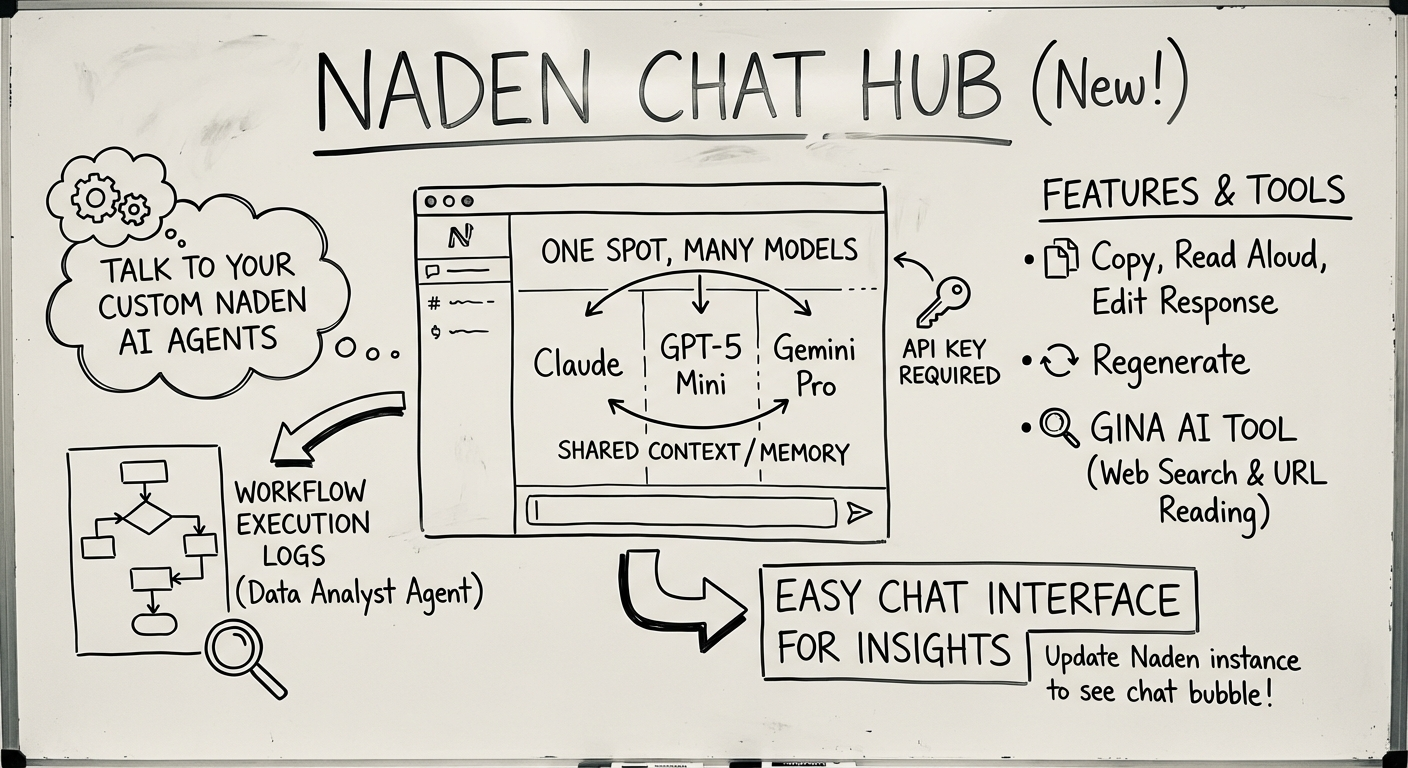 NADEN CHAT HUB (New!)
TALK TO YOUR
CUSTOM NADEN
AI AGENTS
N
ONE SPOT, MANY MODELS
#
$
Claude
GPT-5
Mini
Gemini
Pro
SHARED CONTEXT/MEMORY
API KEY
REQUIRED
FEATURES & TOOLS
• Copy, Read Aloud,
Edit Response
• Regenerate
• GINA AI TOOL
(Web Search & URL
Reading)
WORKFLOW
EXECUTION
LOGS
(Data Analyst Agent)
EASY CHAT INTERFACE
FOR INSIGHTS
Update Naden instance
to see chat bubble!